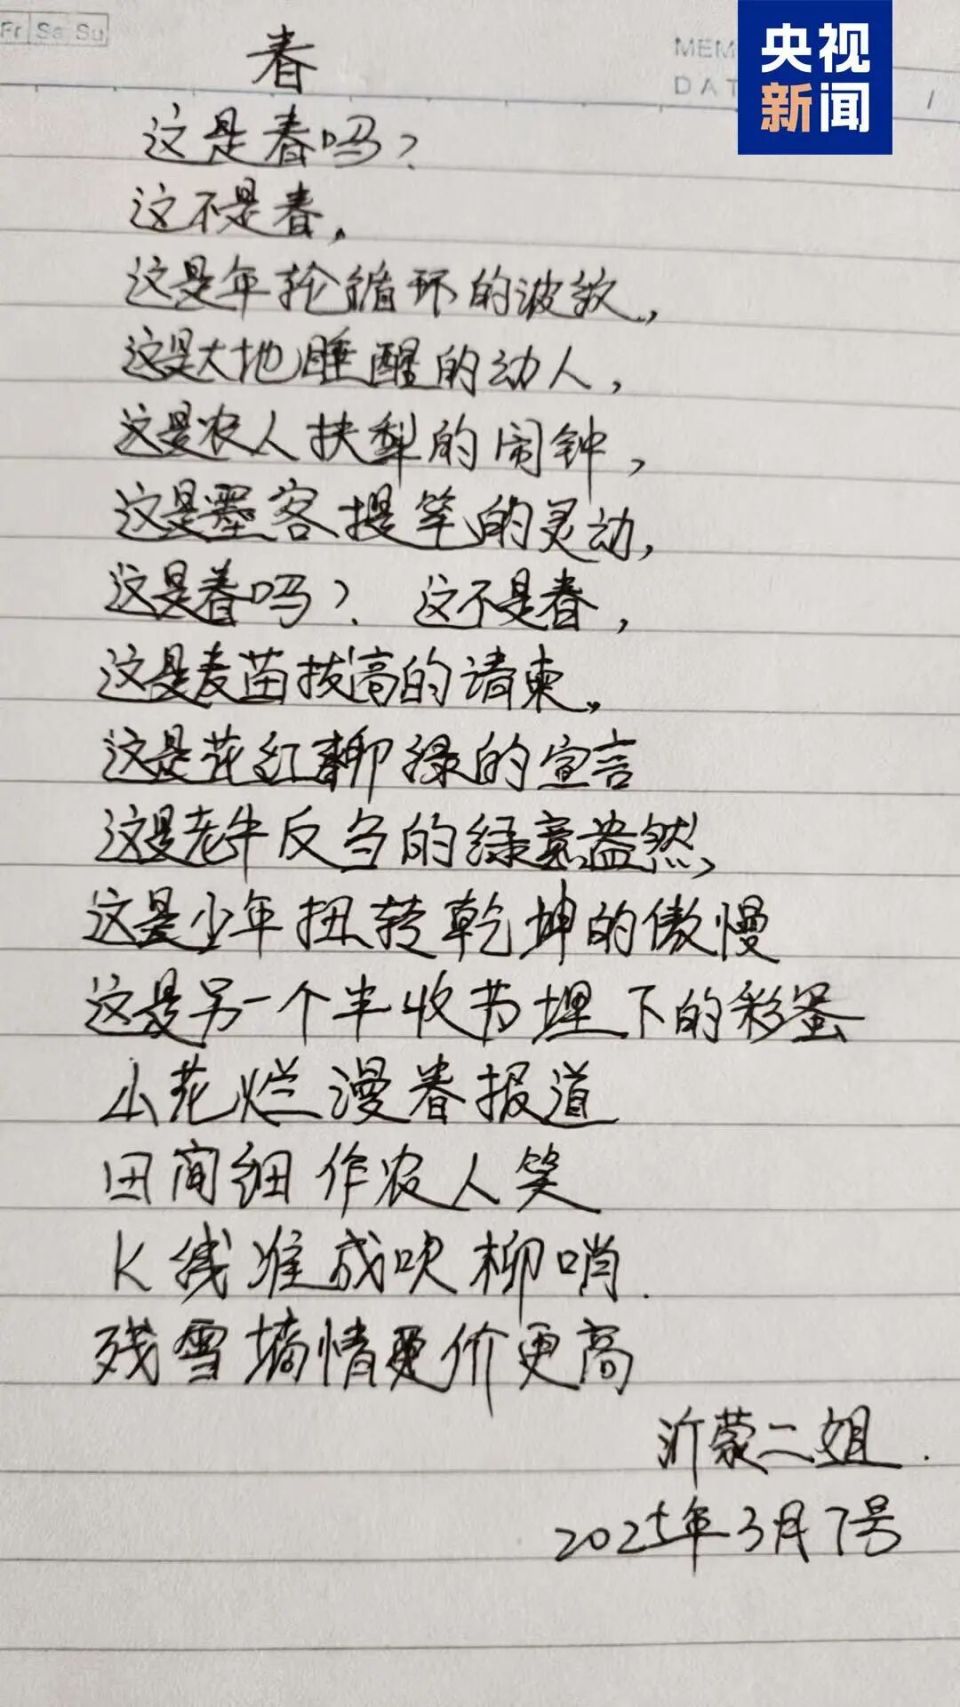 Fr Sa Su
央视
新闻
MEM
DAT
春
这是春吗？
这不是春，
这是年轮循环的波纹，
这是大地睡醒的动人，
这是农人扶犁的闹钟，
这是墨客提笔的灵动，
这是春吗？ 这不是春，
这是麦苗拔高的请柬，
这是花红柳绿的宣言
这是老牛反刍的绿意盎然，
这是少年扭转乾坤的傲慢
这是另一个丰收节埋下的彩蛋
小花烂漫春报道
田间细作农人笑
K线准成吹柳哨.
残雪墒情更价更高
沂蒙二姐.
2025年3月7号